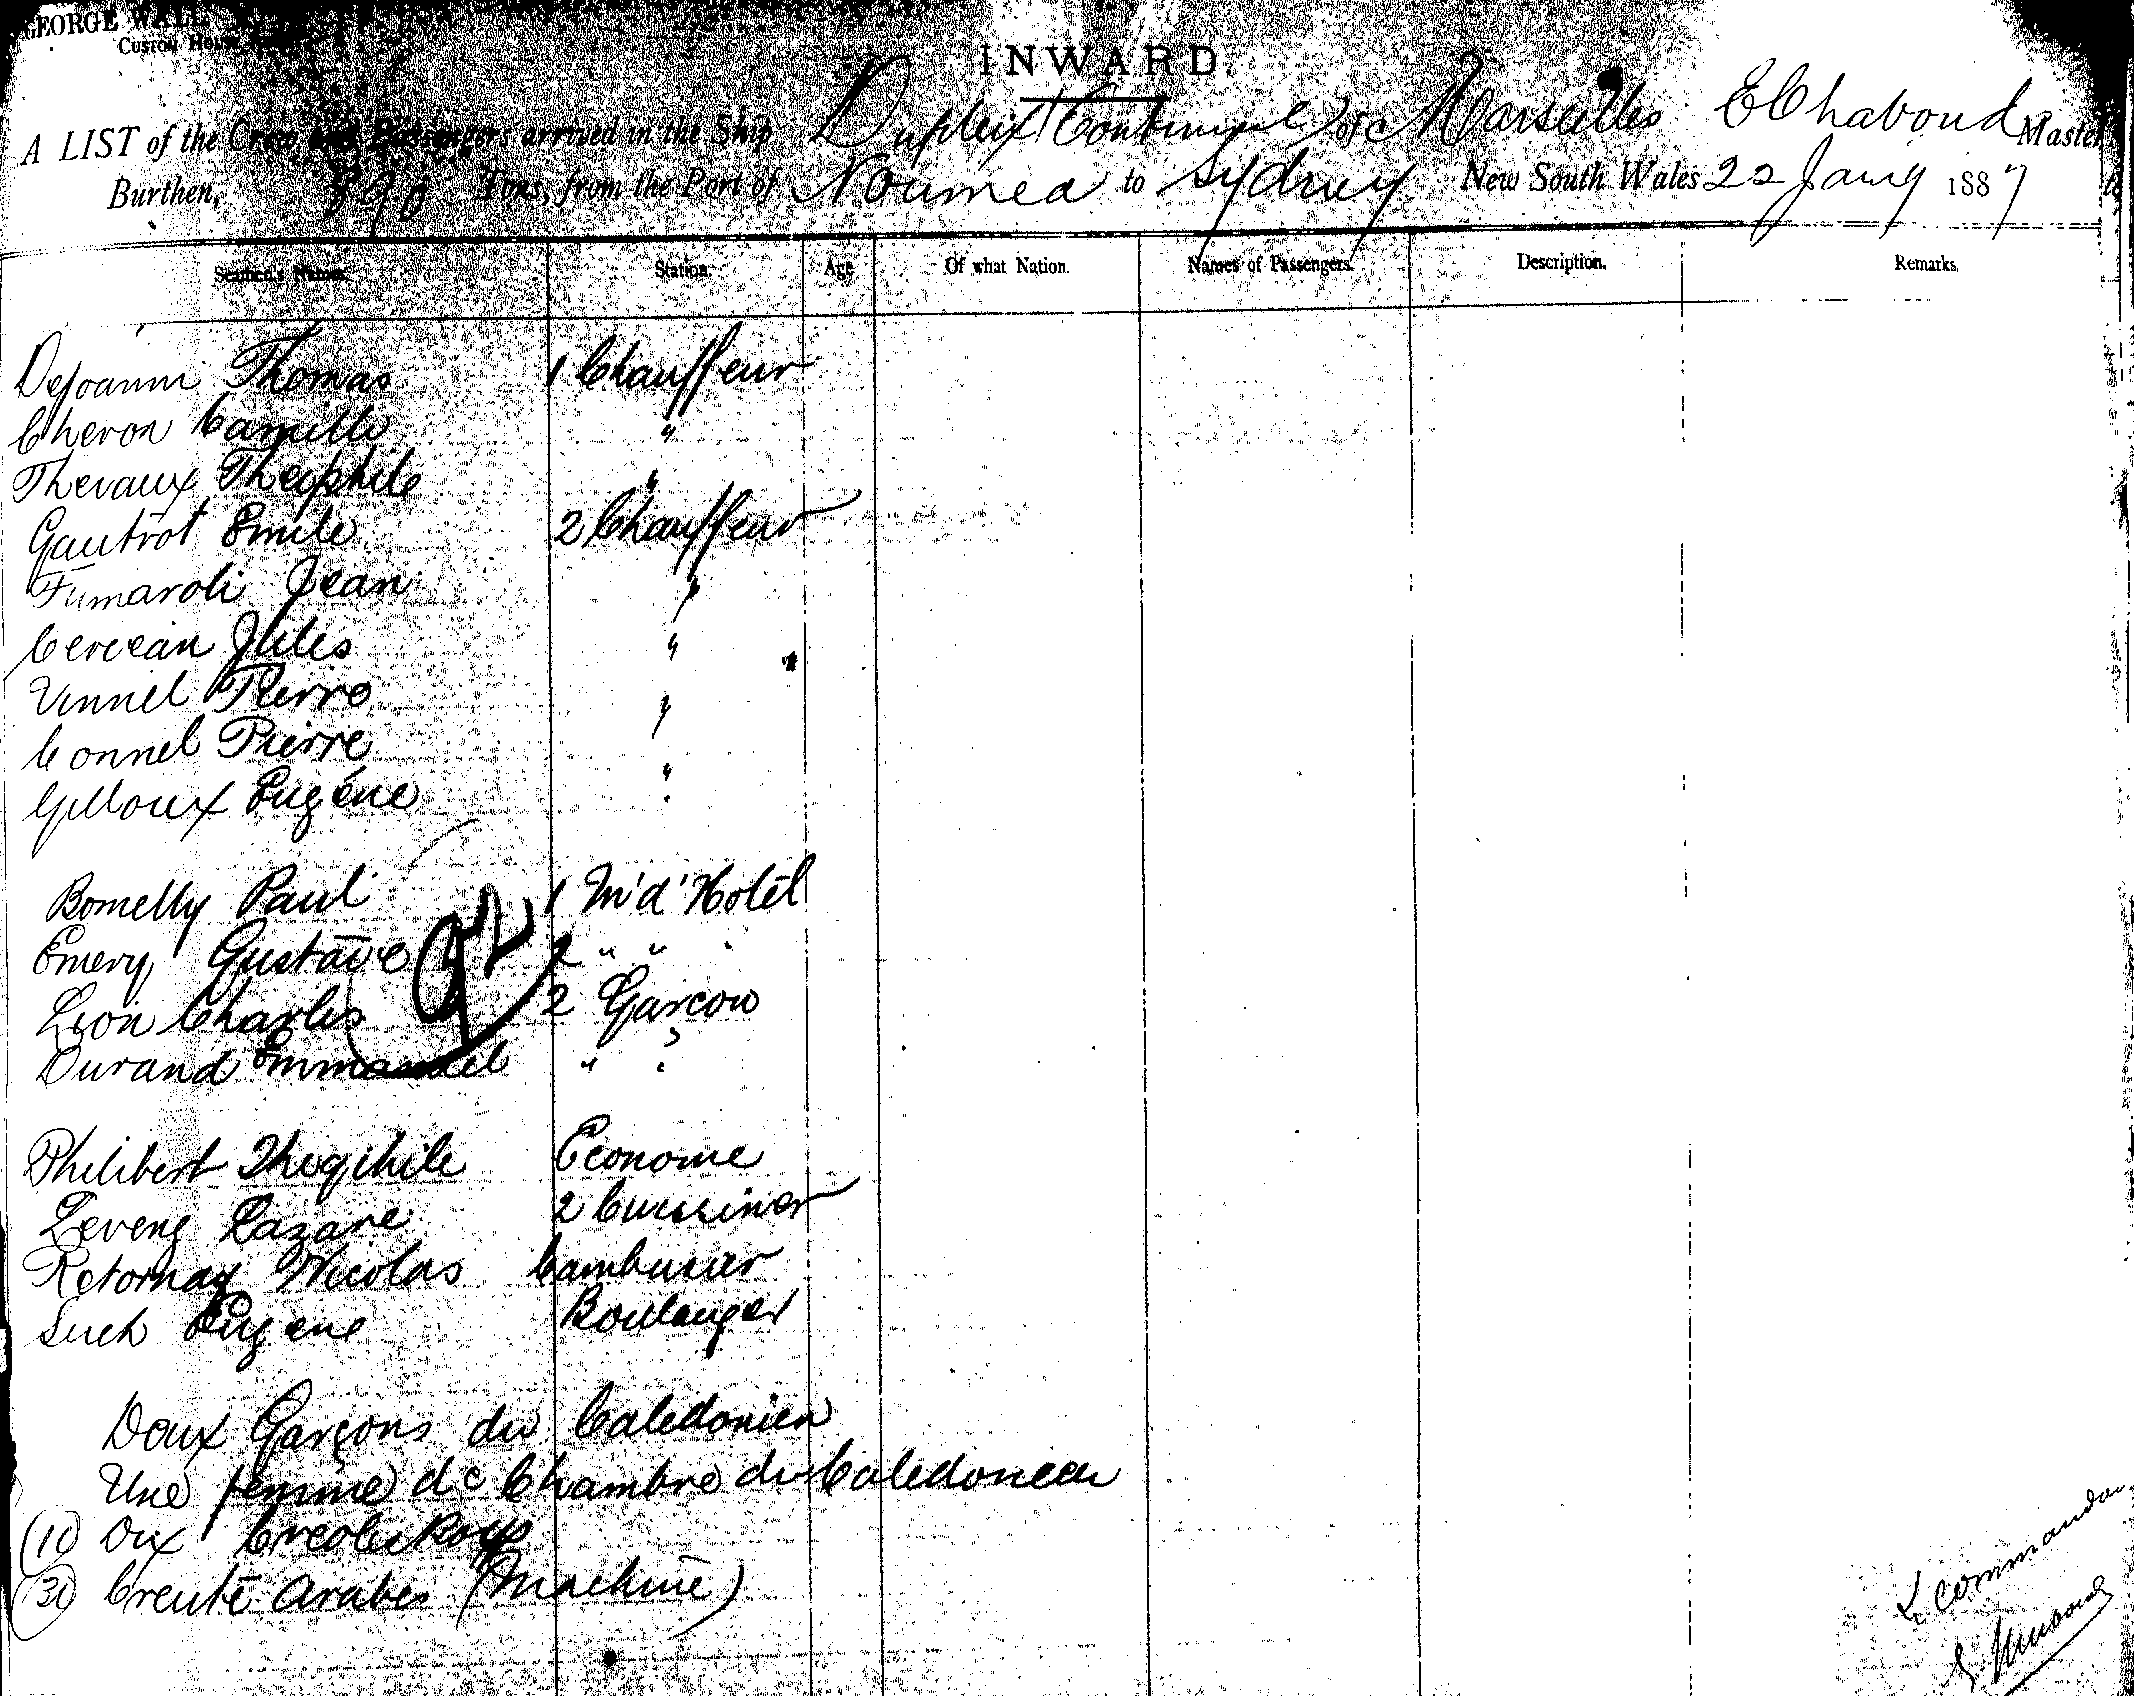 GEORGE WALL
Custom House
INWARD.
A LIST of the Crew and Passengers arrived in the Ship Dupleix of Marseilles E Chaboud Master
Burthen, Tons, from the Port of Noumea to Sydney New South Wales 22 Jany 1887
Seamen's Names. Station. Age Of what Nation. Names of Passengers. Description. Remarks.
Dejoanni Thomas 1 Chauffeur
Cheron Camille "
Thevaux Theophile "
Gautrot Emile 2 Chauffeur
Fumaroli Jean "
Cerceau Jules "
Vinnel Pierre "
Connel Pierre "
Gilloux Eugéne "
Bomelly Paul 1 M'd'Hotel
Emery Gustave 2 " " "
Leon Charles 2 Garcon
Durand Emmanuel " "
Philibert Theophile Econome
Leveng Lazare 2 Cuissinier
Retornay Nicolas Cambusier
Such Eugene Boulanger
Deux Garçons du Caledonien
Une femme de Chambre du Caledonien
(10) Dix Creoles Boys
(30) Trente Arabes (Machine)
L Commandant
E Chaboud